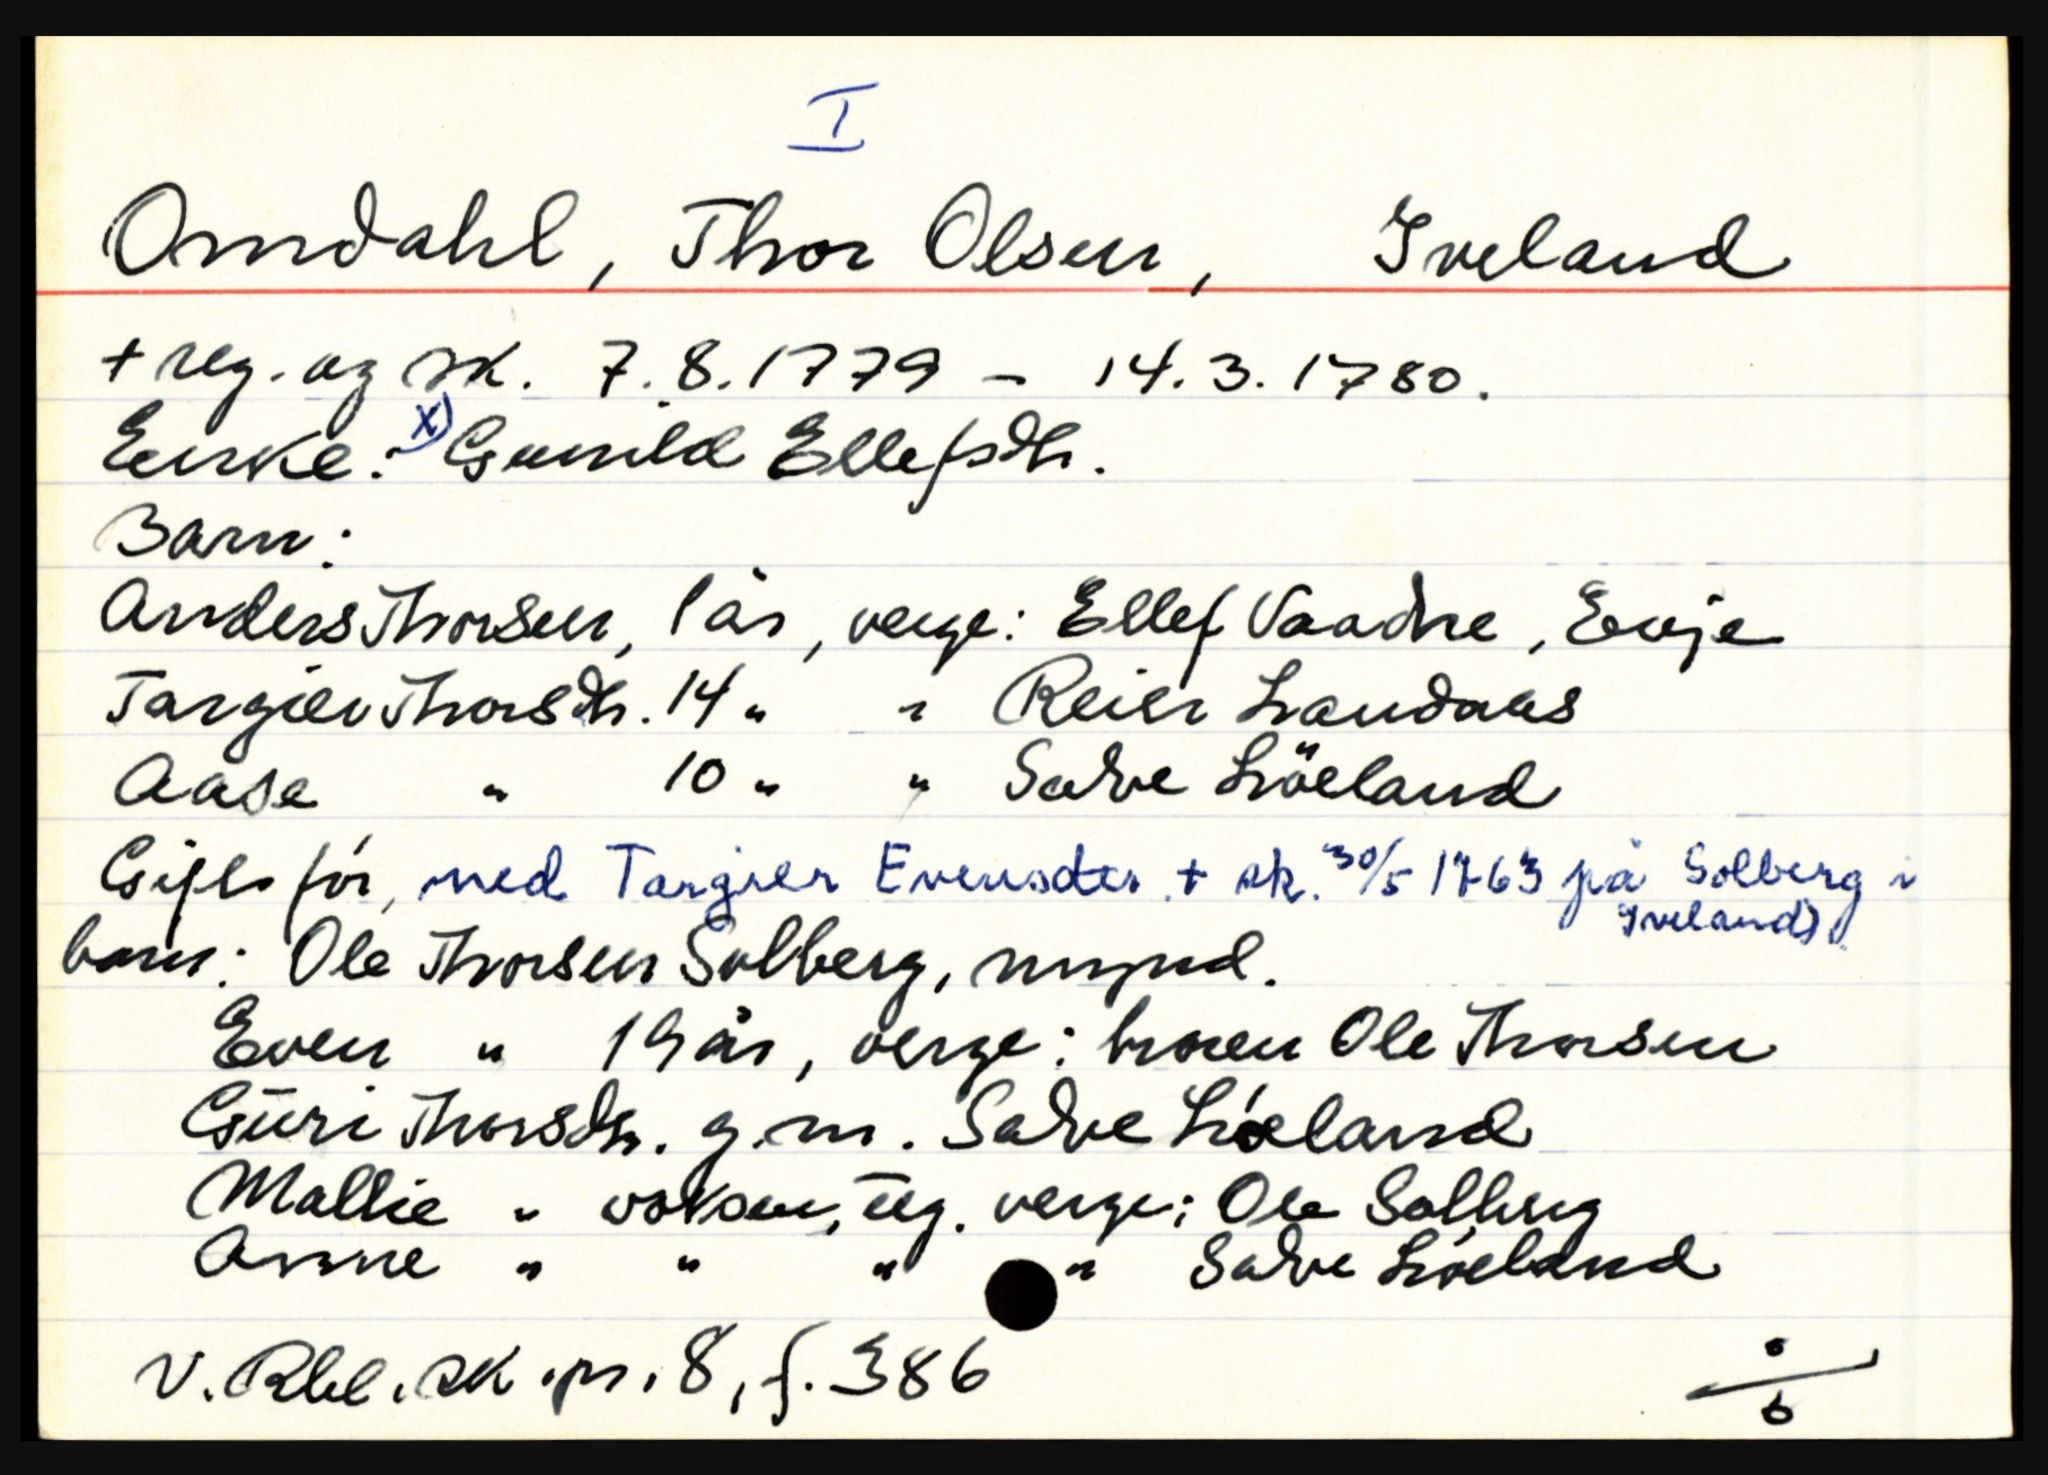 I
Omdahl, Thor Olsen, Iveland
+ reg. og sk. 7.8.1779 – 14.3.1780.
Enke: x) Gunild Ellefsdtr.
Barn:
Anders Thorsen, 1 år, verge: Ellef Vaadne, Evje
Targier Thorsdtr. 14 " " Reier Landaas
Aase " 10 " " Salve Liöeland
Gift før, med Targier Evensdter + sk. 30/5 1763 på Solberg i
Iveland)
barn: Ole Thorsen Solberg, mynd.
Even " 19 år, verge: broren Ole Thorsen
Gūri Thorsdtr. g.m. Salve Liøeland
Mallie " voksen, ug. verge: Ole Solberg
Anne " " " " Salve Liöeland
V. Rbl. sk. pr. 8, f. 386